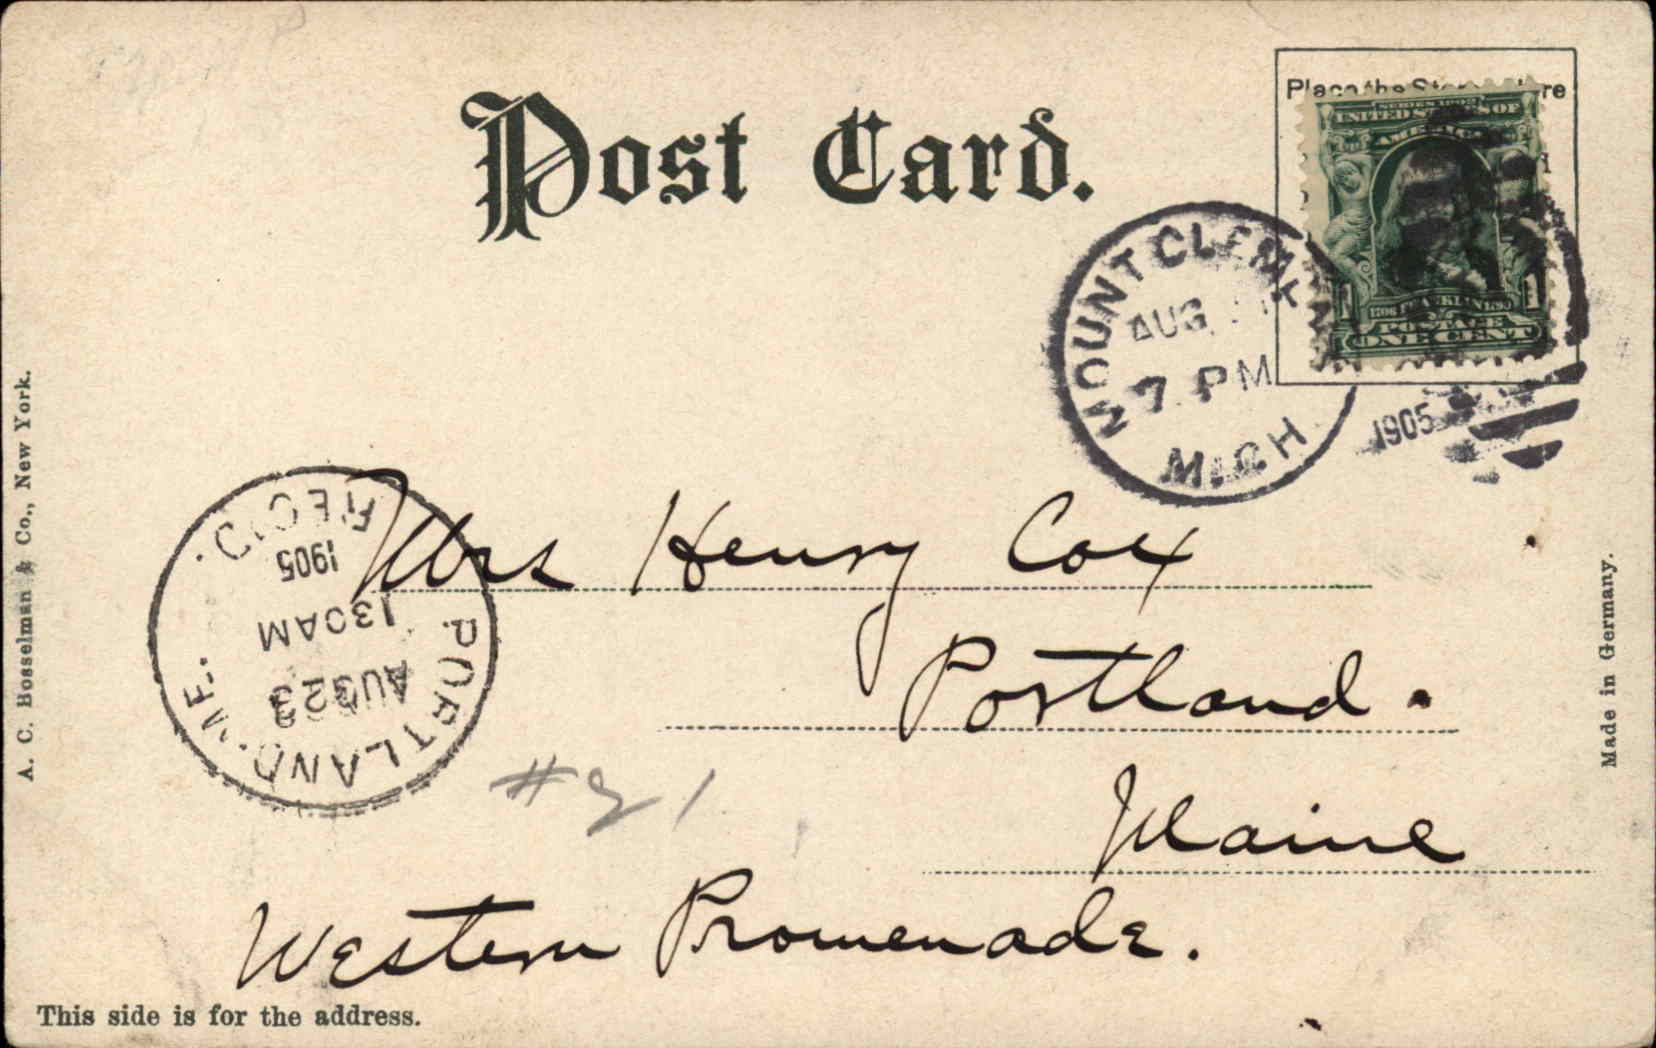 Post Card.
Place the Stamp here
SERIES 1902
UNITED STATES OF
AMERICA
1706 FRANKLIN 1790
POSTAGE
1 1
ONE CENT
MOUNT CLEMENS
AUG
7 PM
MICH
1905
REC'D.
1905
130AM
AUG23
PORTLAND. ME.
Mrs Henry Cox
Portland.
Maine
Western Promenade.
This side is for the address.
A. C. Bosselman & Co., New York.
Made in Germany.